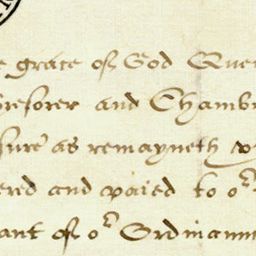 e grace of God Quee
hresorer and Chambe
sure as remayneth w
ered and paied to oʳ
ant of oʳ Ordinaun